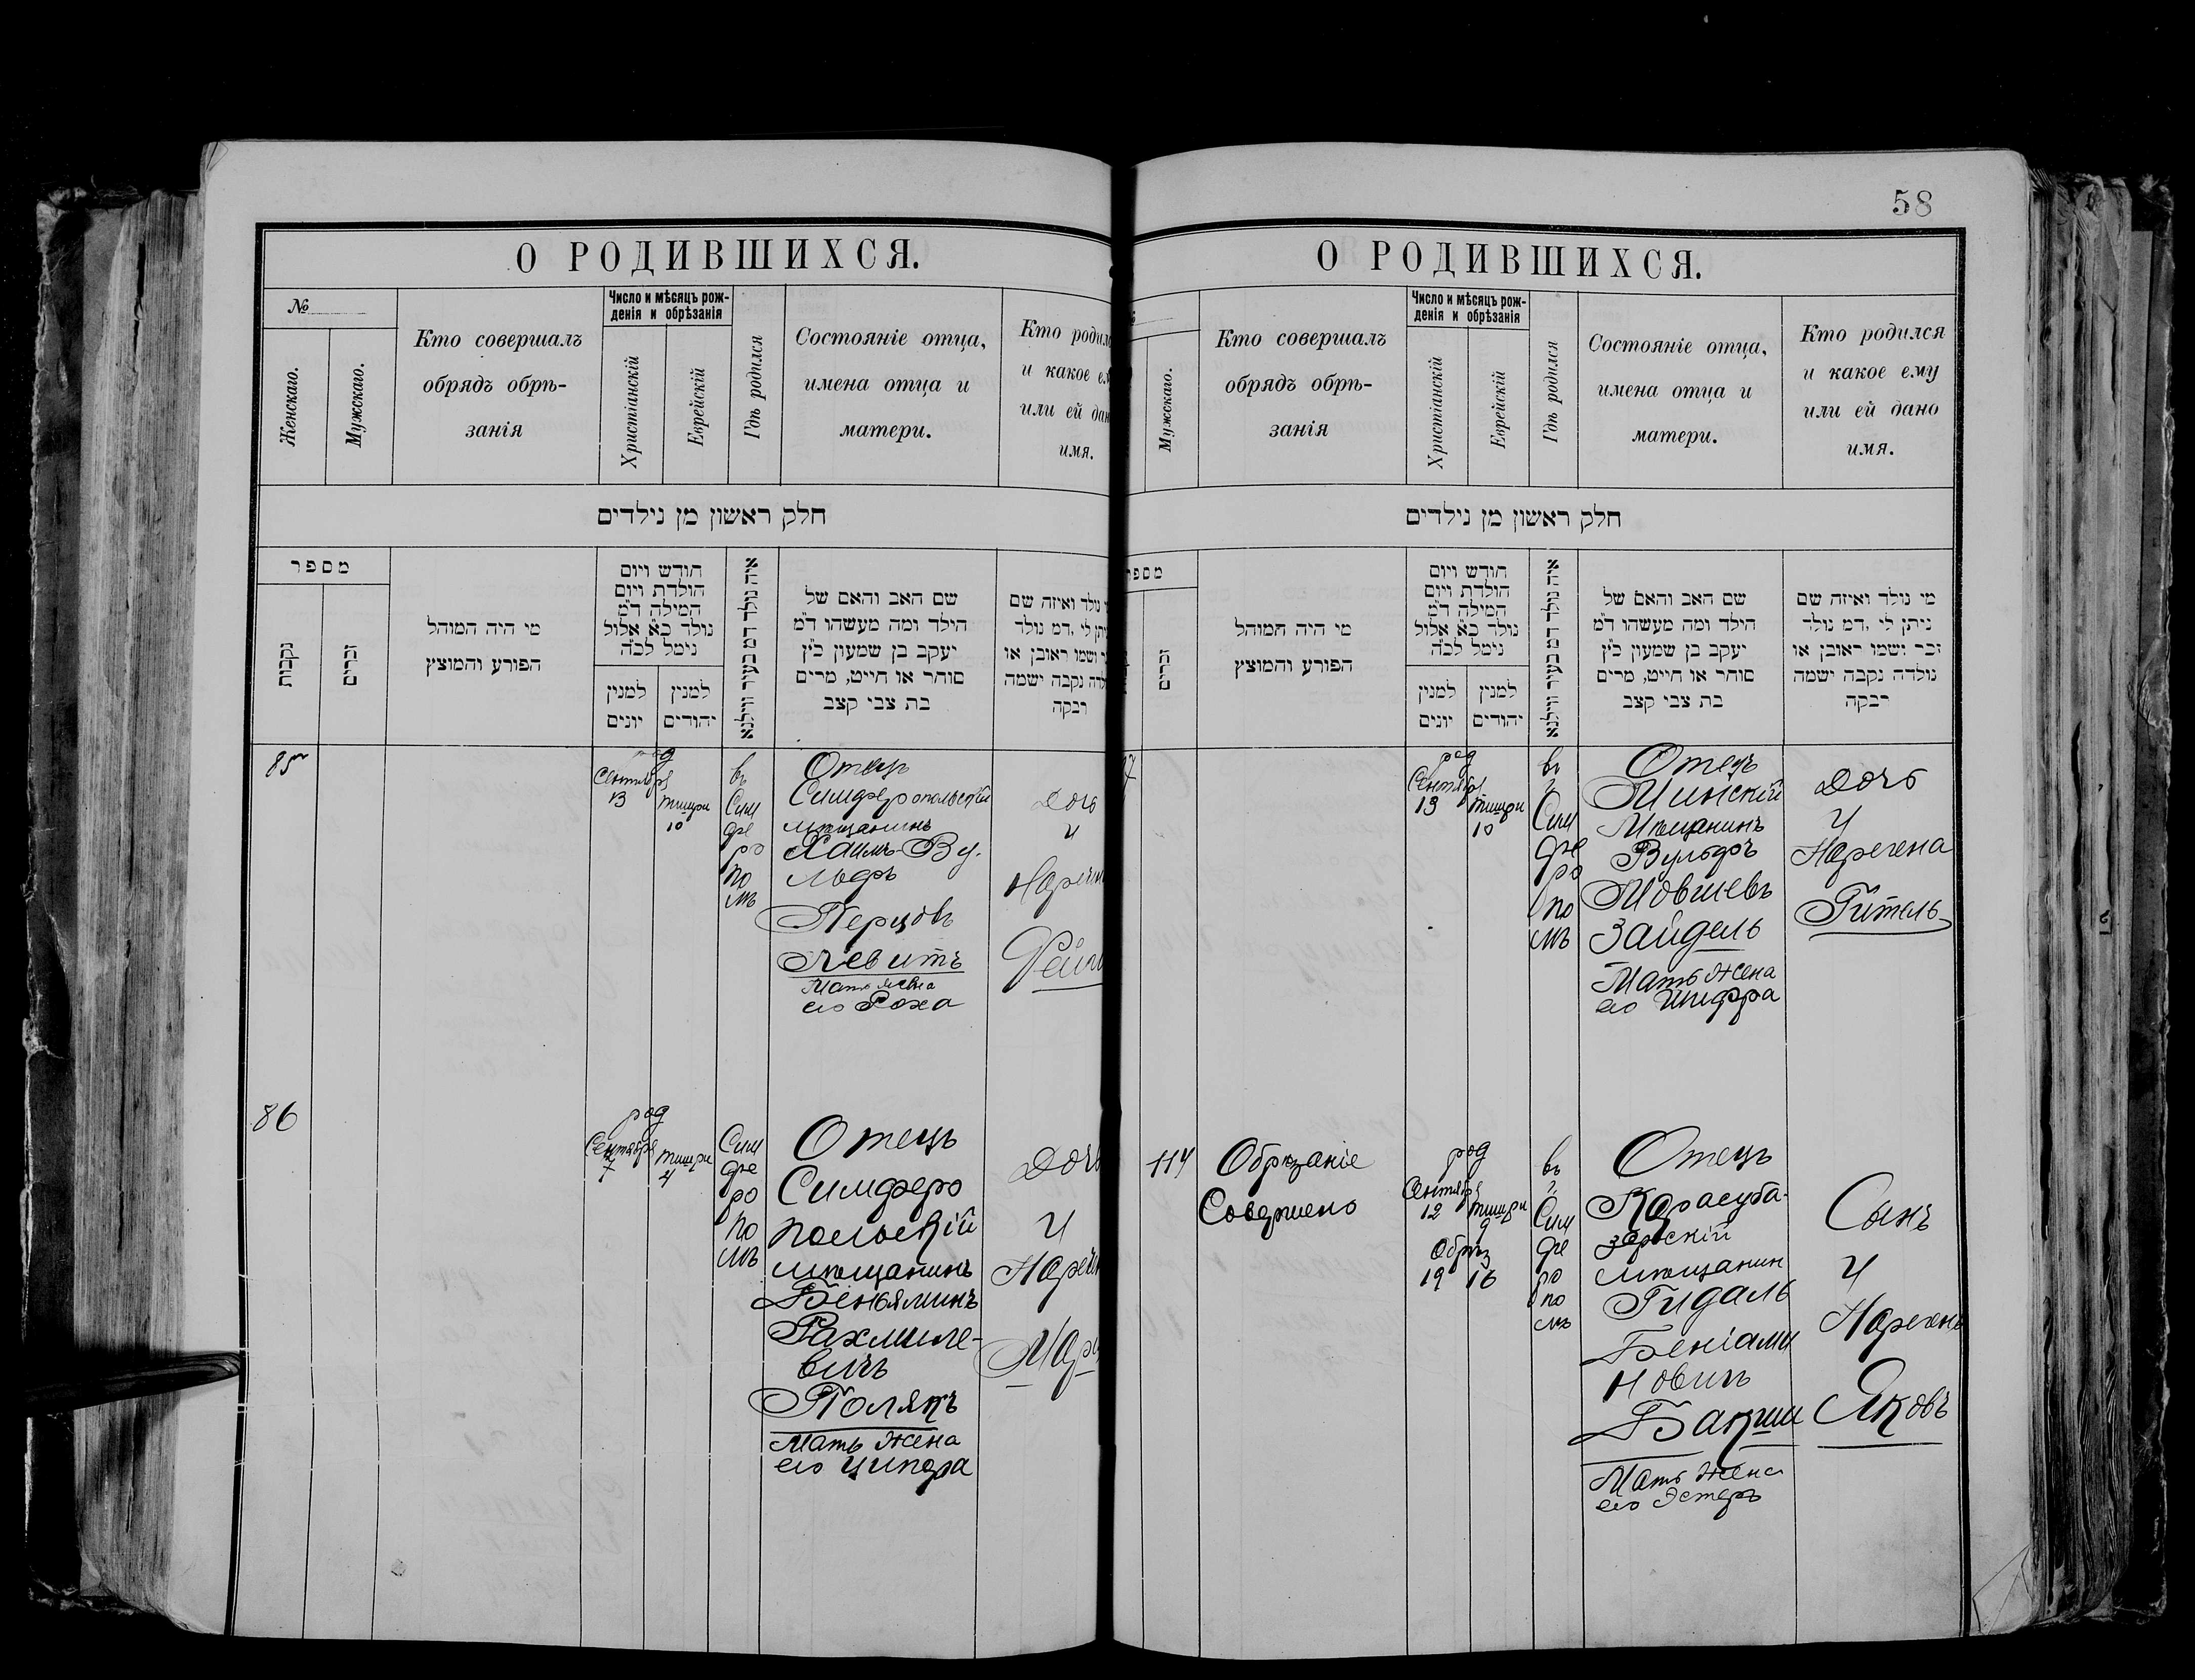 58
О РОДИВШИХСЯ.
№
Женскаго.
Мужскаго.
Кто совершалъ
обрядъ обрѣ-
занія
Число и мѣсяцъ рож-
денія и обрѣзанія
Христіанскій
Еврейскій
Гдѣ родился
Состояніе отца,
имена отца и
матери.
Кто родил
и какое ем
или ей дан
имя.
חלק ראשון מן נילדים
מספר
נקבות
זכרים
מי היה המוהל
הפורע והמוצץ
חודש ויום
הולדת ויום
המילה ד"מ
נולד כ"א אלול
נימל לכ"ה
למנין
יונים
למנין
יהודים
איה נולד דמ בעיר ווילנא
שם האב והאם של
הילד ומה מעשהו ד"מ
יעקב בן שמעון כ"ץ
סוחר או חייט, מרים
בת צבי קצב
נולד ואיזה שם
יתן לי ,דמ נולד
ושמו ראובן או
נקבה ישמה
רבקה
85
род
Сентября
13
тишри
10
въ
Сим
фе
ро
по
лѣ
Отецъ
Симферопольскій
мѣщанинъ
Хаимъ-Ву-
льфъ
Перцовъ
Левитъ
Мать жена
его Роха
Дочь
и
Нарече
Фейг
86
род
Сентября
7
тишри
4
Сим
фе
ро
по
лѣ
Отецъ
Симферо
польскій
мѣщанинъ
Беньяминъ
Рахмиле-
вичъ
Полякъ
Мать жена
его Ципора
Дочь
и
Нарече
О РОДИВШИХСЯ.
Мужскаго.
Кто совершалъ
обрядъ обрѣ-
занія
Число и мѣсяцъ рож-
денія и обрѣзанія
Христіанскій
Еврейскій
Гдѣ родился
Состояніе отца,
имена отца и
матери.
Кто родился
и какое ему
или ей дано
имя.
חלק ראשון מן נילדים
מספר
זכרים
מי היה המוהל
הפורע והמוצץ
חודש ויום
הולדת ויום
המילה ד"מ
נולד כ"א אלול
נימל לכ"ה
למנין
יונים
למנין
יהודים
איה נולד דמ בעיר ווילנא
שם האב והאם של
הילד ומה מעשהו ד"מ
יעקב בן שמעון כ"ץ
סוחר או חייט, מרים
בת צבי קצב
מי נולד ואיזה שם
ניתן לי ,דמ נולד
זכר ישמו ראובן או
נולדה נקבה ישמה
רבקה
7
род
Сентября
13
тишри
10
въ
г.
Сим
фе
ро
по
лѣ
Отецъ
Минскій
Мѣщанинъ
Вульфъ
Мовшевъ
Зайдель
Мать жена
его Шифра
Дочь
и
Наречена
Гитель
114
Обрѣзаніе
Совершено
род
Сентября
12
тишри
9
Обрѣз
19 16
въ
г.
Сим
фе
ро
по
лѣ
Отецъ
Карасуба-
зарскій
мѣщанин
Гидаль
Беніами
новичъ
Бакши
Мать жена
его Эстеръ
Сынъ
и
Нареченъ
Яковъ